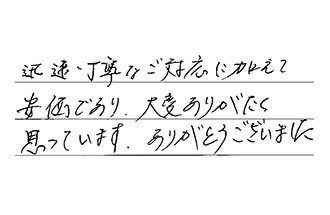 迅速・丁寧なご対応に加えて
安価であり、大変ありがたく
思っています。ありがとうございました